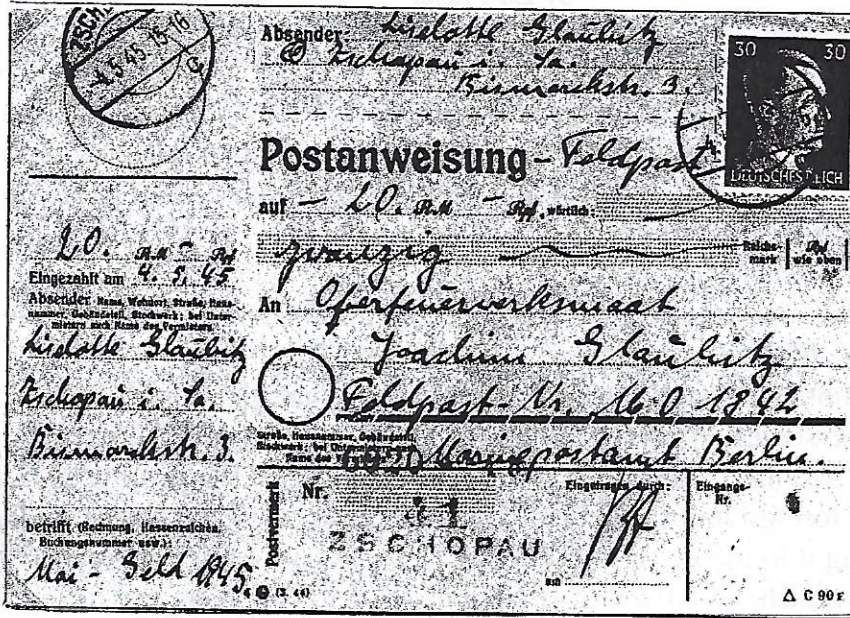 ZSCH
-4.5.45 15-16
c
20. RM - Rpf
Eingezahlt am 4. 5. 45
Absender Name, Wohnort, Straße, Haus-
nummer, Gebäudeteil, Stockwerk; bei Unter-
mietern auch Name des Vermieters
Liselotte Glaubitz
Zschopau i. Sa.
Bismarckstr. 3.
betrifft (Rechnung, Kassenzeichen,
Buchungsnummer usw.):
Mai - Geld 1945
Absender: Liselotte Glaubitz
Zschopau i. Sa.
Bismarckstr. 3.
30 30
DEUTSCHES REICH
Postanweisung - Feldpost
auf - 20. RM - Rpf, wörtlich:
zwanzig Reichs-
mark Rpf
wie oben
An Oberfeuerwerksmaat
Joachim Glaubitz
Feldpost-Nr. M 0 1842
Straße, Hausnummer, Gebäudeteil,
Stockwerk; bei Untermietern auch
Name des Vermieters
Marinepostamt Berlin.
Postvermerk
Nr.
41
ZSCHOPAU
Eingetragen durch:
am
Eingangs-
Nr.
(3. 44)
Δ C 90 F